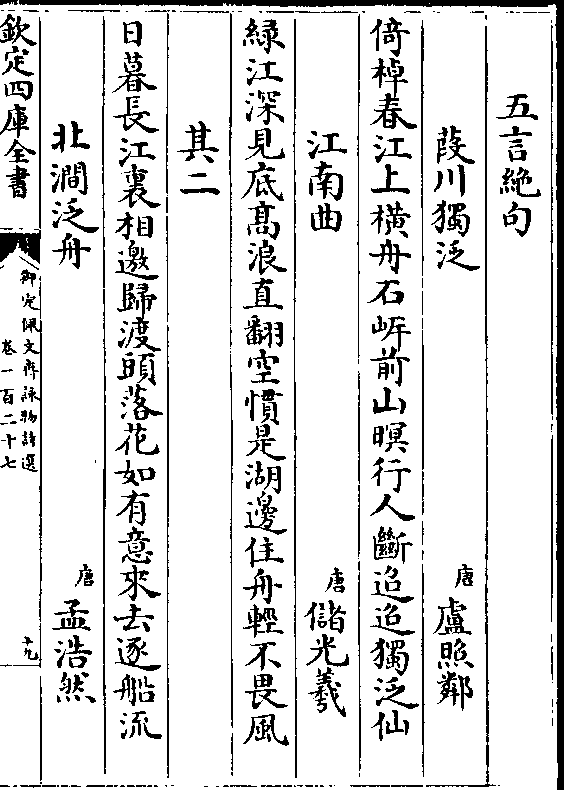 五言絶句
葭川獨泛 唐 盧照鄰
倚棹春江上横舟石㟁前山暝行人斷迢迢獨泛仙
江南曲 唐 儲光羲
緑江深見底髙浪直翻空慣是湖邊住舟輕不畏風
其二
日暮長江裏相邀歸渡頭落花如有意來去逐船流
北澗泛舟 唐 孟浩然
欽定四庫全書
御定佩文齋詠物詩選
卷一百二十七
十九